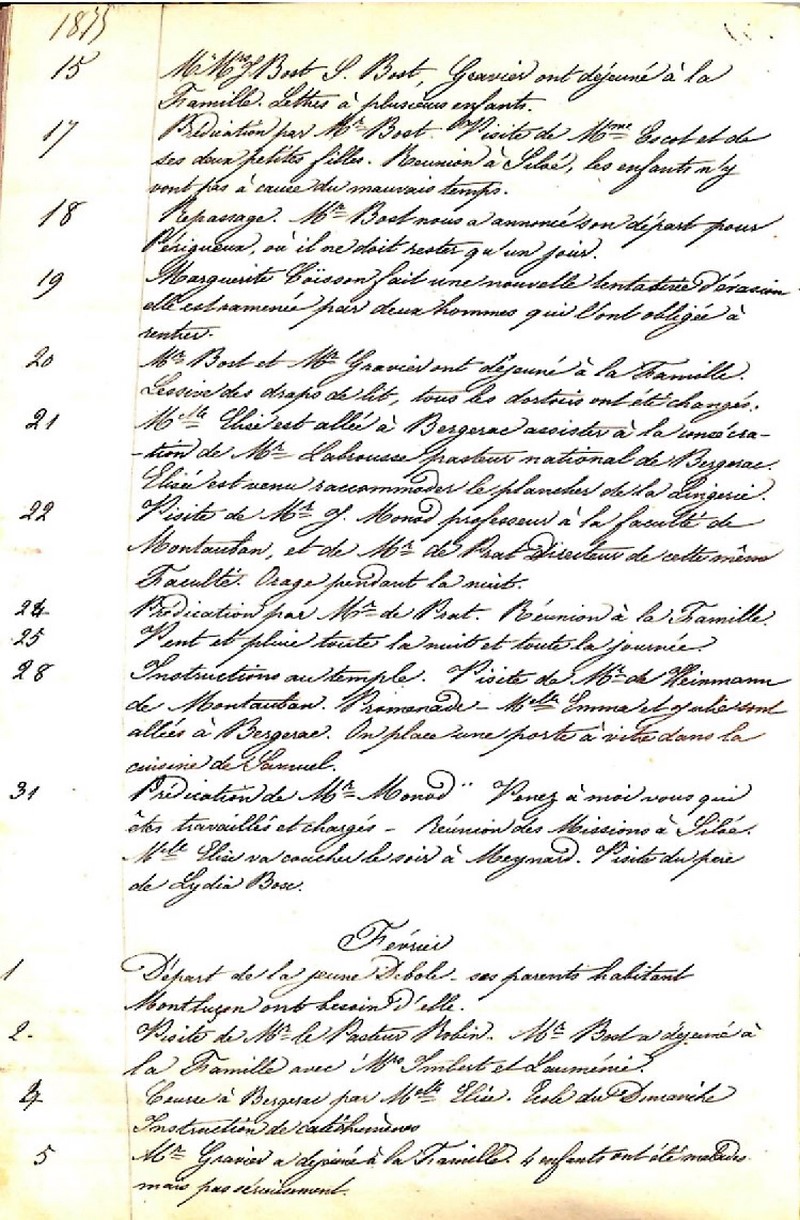 1875
15 Mr Mrs J Bost S. Bost Gravier ont déjeuné à la
Famille. Lettres à plusieurs enfants.
17 Prédication par Mr Bost. Visite de Mme Escot et de
ses deux petites filles. Reunion à Siloé, les enfants n'y
vont pas à cause du mauvais temps.
18 Repassage. Mr Bost nous a annoncé son départ pour
Périgueux, où il ne doit rester qu'un jour.
19 Marguerite Coïsson fait une nouvelle tentative d'évasion
elle est ramenée par deux hommes qui l'ont obligée à
rentrer.
20 Mr Bost et Mr Gravier ont déjeuné à la Famille.
Lessive des draps de lit, tous les dortoirs ont été changés.
21 Melle Elise est allée à Bergerac assister à la consécra-
-tion de Mr Labrousse pasteur national de Bergerac.
Elisée est venu raccommoder le plancher de la Lingerie.
22 Visite de Mr J. Monod professeur à la faculté de
Montauban, et de Mr de Prat Directeur de cette même
Faculté. Orage pendant la nuit.
24 Prédication par Mr de Prat. Réunion à la Famille.
25 Vent et pluie toute la nuit et toute la journée.
28 Instructions au temple. Visite de Mr de Heinmann
de Montauban. Promenade - Melle Emma et Julie sont
allées à Bergerac. On place une porte à vitre dans la
cuisine de Samuel.
31 Prédication de Mr Monod " Venez à moi vous qui
êtes travaillés et chargés - Réunion des Missions à Siloé.
Melle Elise va coucher le soir à Meynard. Visite du père
de Lydia Bosc.
Février
1 Départ de la jeune Debole - ses parents habitant
Montluçon ont besoin d'elle.
2. Visite de Mr le Pasteur Robin. Mr Bost a déjeuné à
la Famille avec Mrs Imbert et Lauménié.
4 Course à Bergerac par Melle Elise. Ecole du Dimanche
Instruction de catéhumènes
5 Mr Gravier a déjeuné à la Famille. 4 enfants ont été malades
mais pas sérieusement.